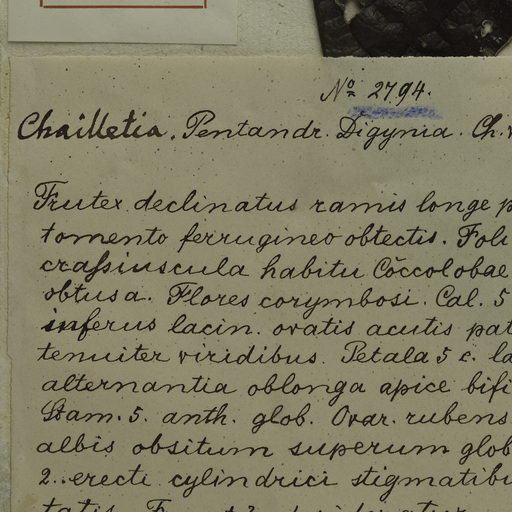 Nº 2794.
Chailletia. Pentandr. Digynia. Ch.
Frutex declinatus ramis longe p
tomento ferrugineo obtectis. Foli
crassiuscula habitu Coccolobae
obtusa. Flores corymbosi. Cal. 5
inferus lacin. ovatis acutis pat
tenuiter viridibus. Petala 5 c. la
alternantia oblonga apice bifi
Stam. 5. anth. glob. Ovar. rubens
albis obsitum superum glob
2.. erecti cylindrici stigmatibu